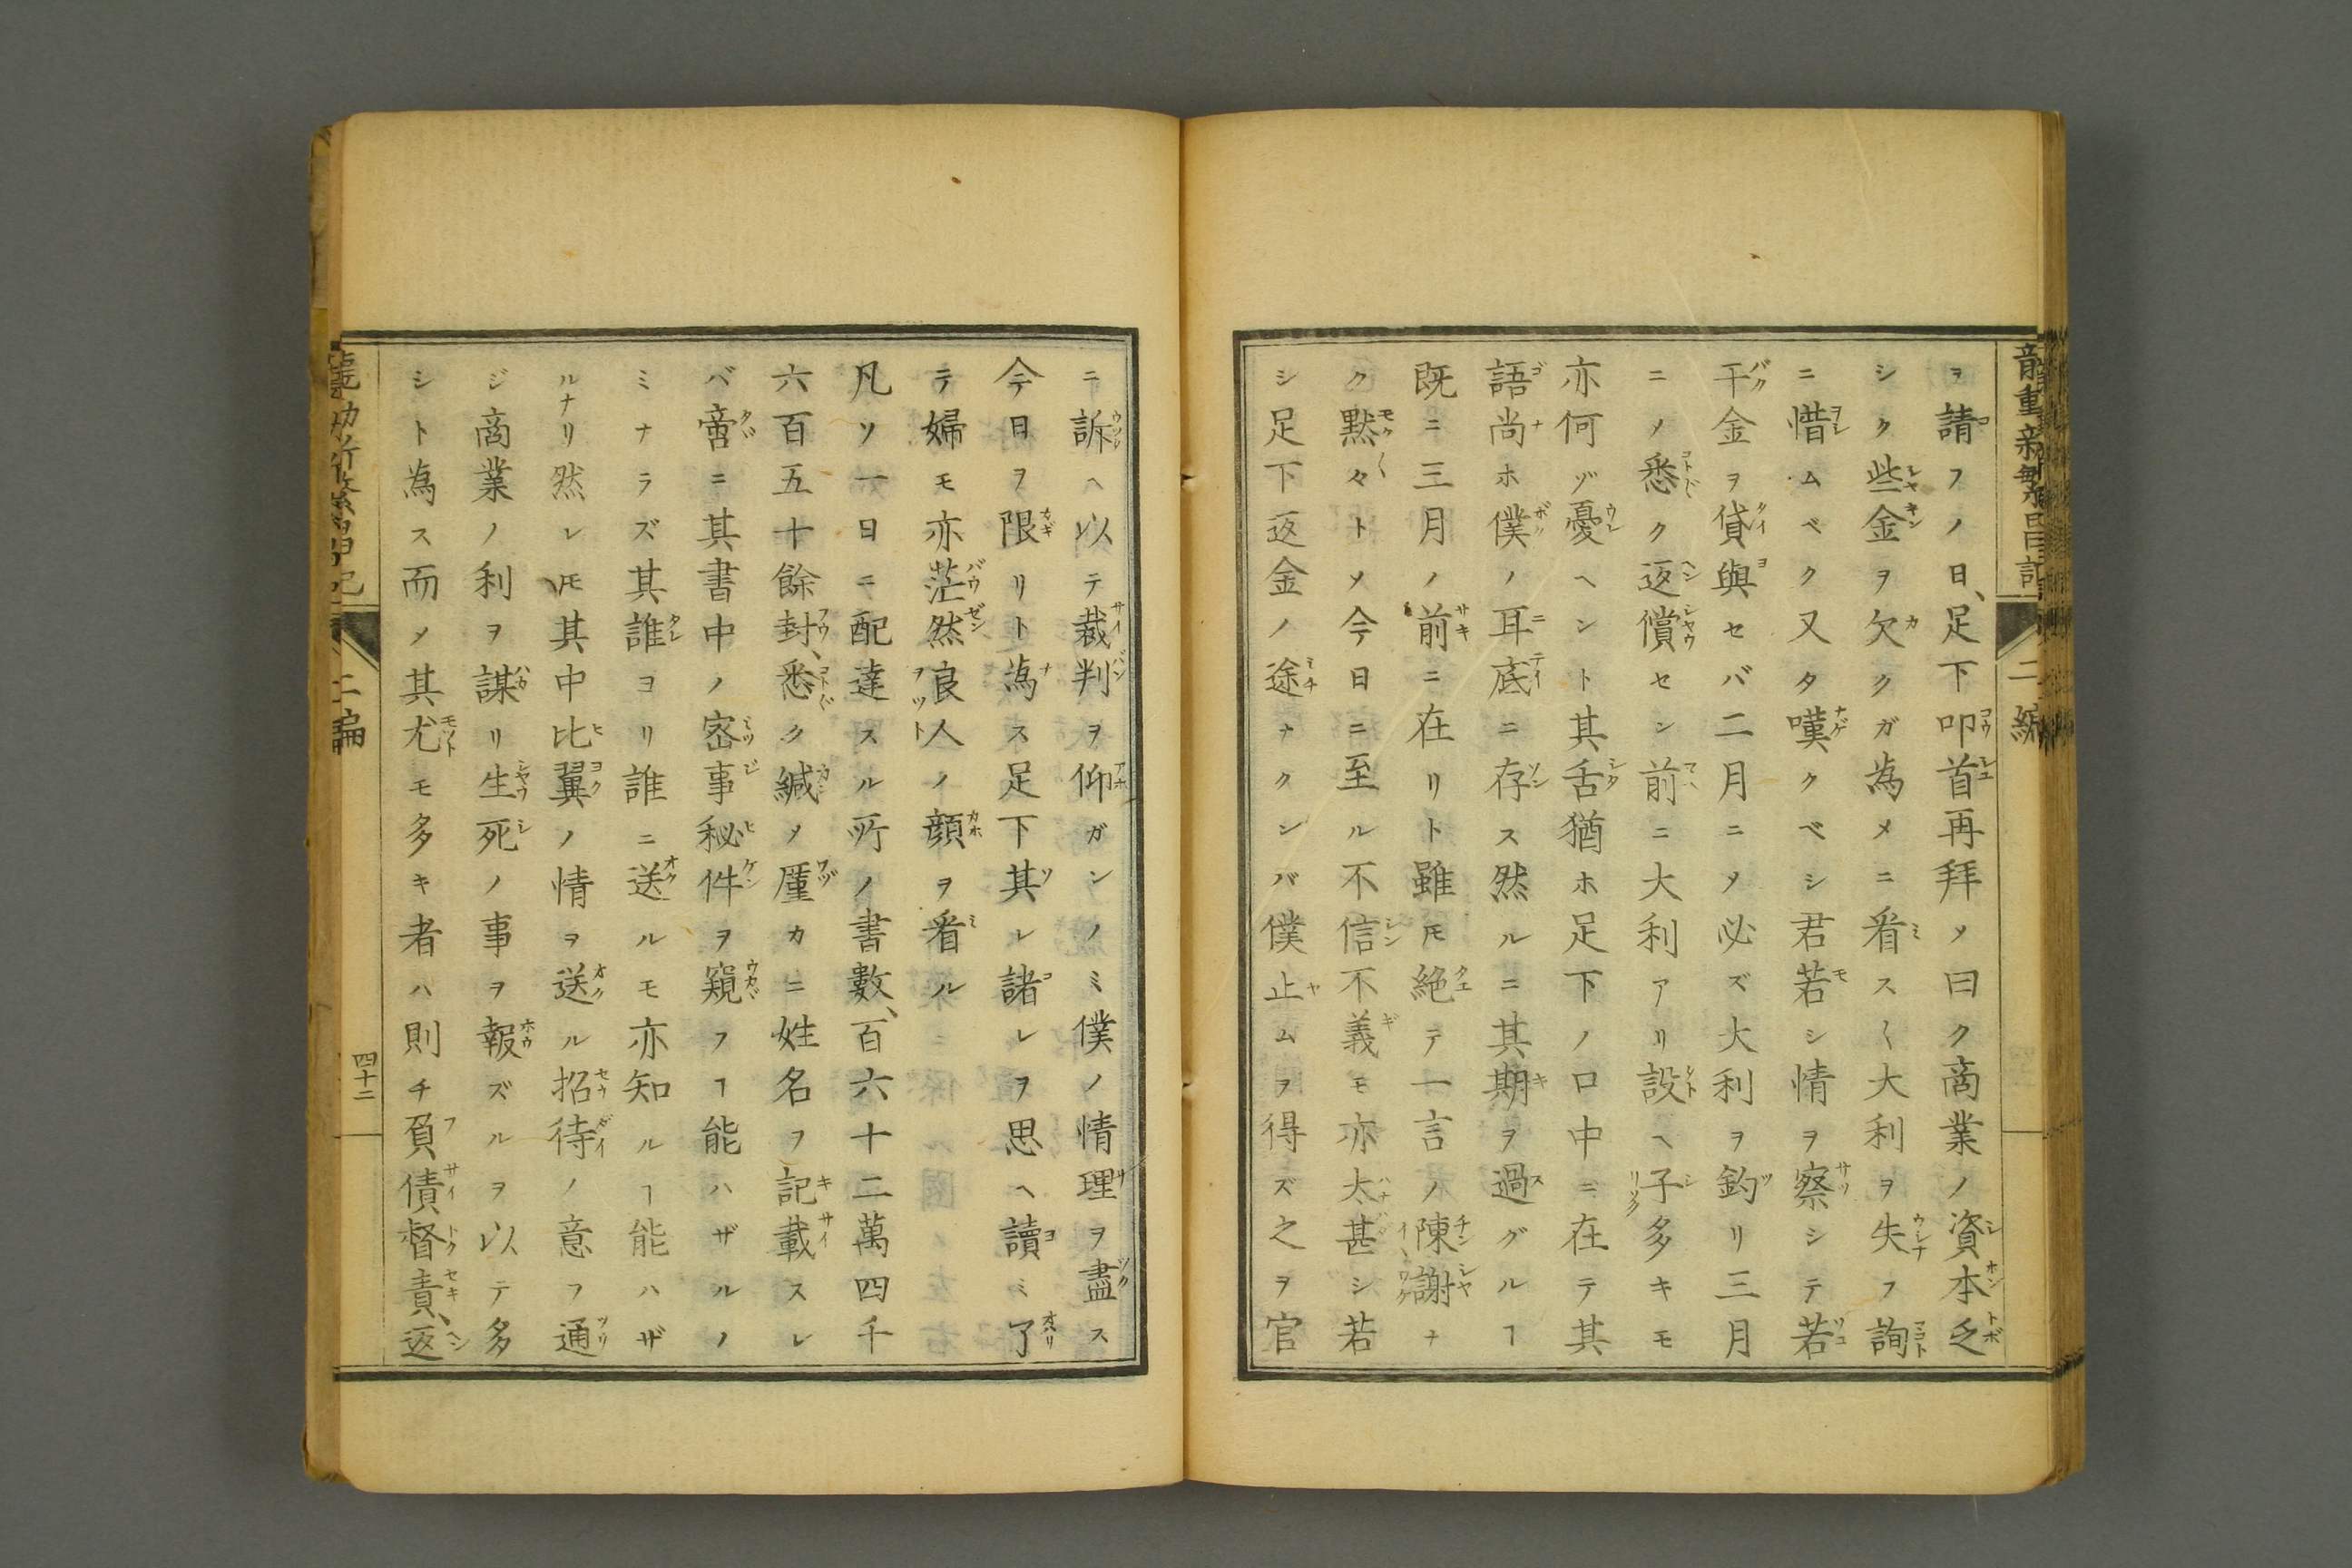 ヲ請フノ日、足下叩首再拜〆曰ク商業ノ資本乏
シク些金ヲ欠クガ為メニ看ス〱大利ヲ失フ詢
ニ惜ムベク又タ嘆クベシ君若シ情ヲ察シテ若
干金ヲ貸與セバ二月ニ〆必ズ大利ヲ釣リ三月
ニノ悉ク返償セン前ニ大利アリ設ヘ子多キモ
亦何ゾ憂ヘント其舌猶ホ足下ノ口中ニ在テ其
語尚ホ僕ノ耳底ニ存ス然ルニ其期ヲ過グルヿ
既ニ三月ノ前ニ在リト雖𪜈絶テ一言ノ陳謝ナ
ク黙々ト〆今日ニ至ル不信不義モ亦太甚シ若
シ足下返金ノ途ナクンバ僕止ムヲ得ズ之ヲ官
二編
ニ訴ヘ以テ裁判ヲ仰ガンノミ僕ノ情理ヲ盡ス
今日ヲ限リト為ス足下其レ諸レヲ思ヘ讀ミ了
テ婦モ亦茫然良人ノ顔ヲ看ル
凡ソ一日ニ配達スル所ノ書數、百六十二萬四千
六百五十餘封、悉ク緘〆厪カニ姓名ヲ記載スレ
バ啻ニ其書中ノ宻事秘件ヲ窺フヿ能ハザルノ
ミナラズ其誰ヨリ誰ニ送ルモ亦知ルヿ能ハザ
ルナリ然レ𪜈其中比翼ノ情ヲ送ル招待ノ意フ通
ジ商業ノ利ヲ謀リ生死ノ事ヲ報ズルヲ以テ多
シト為ス而〆其尤モ多キ者ハ則チ負債督責、返
二編
四十二